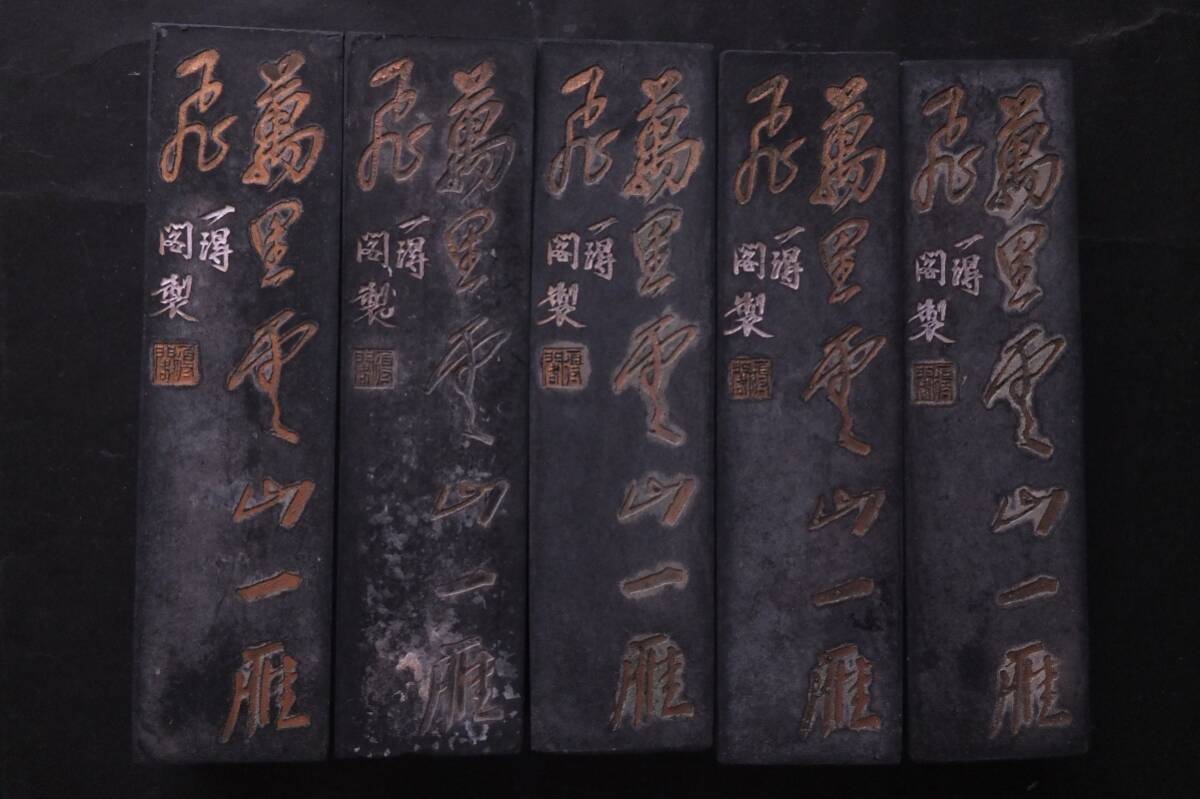 萬里雲山一雁
飛
一得
閣製
得閣
萬里雲山一雁
飛
一得
閣製
得閣
萬里雲山一雁
飛
一得
閣製
得閣
萬里雲山一雁
飛
一得
閣製
得閣
萬里雲山一雁
飛
一得
閣製
得閣